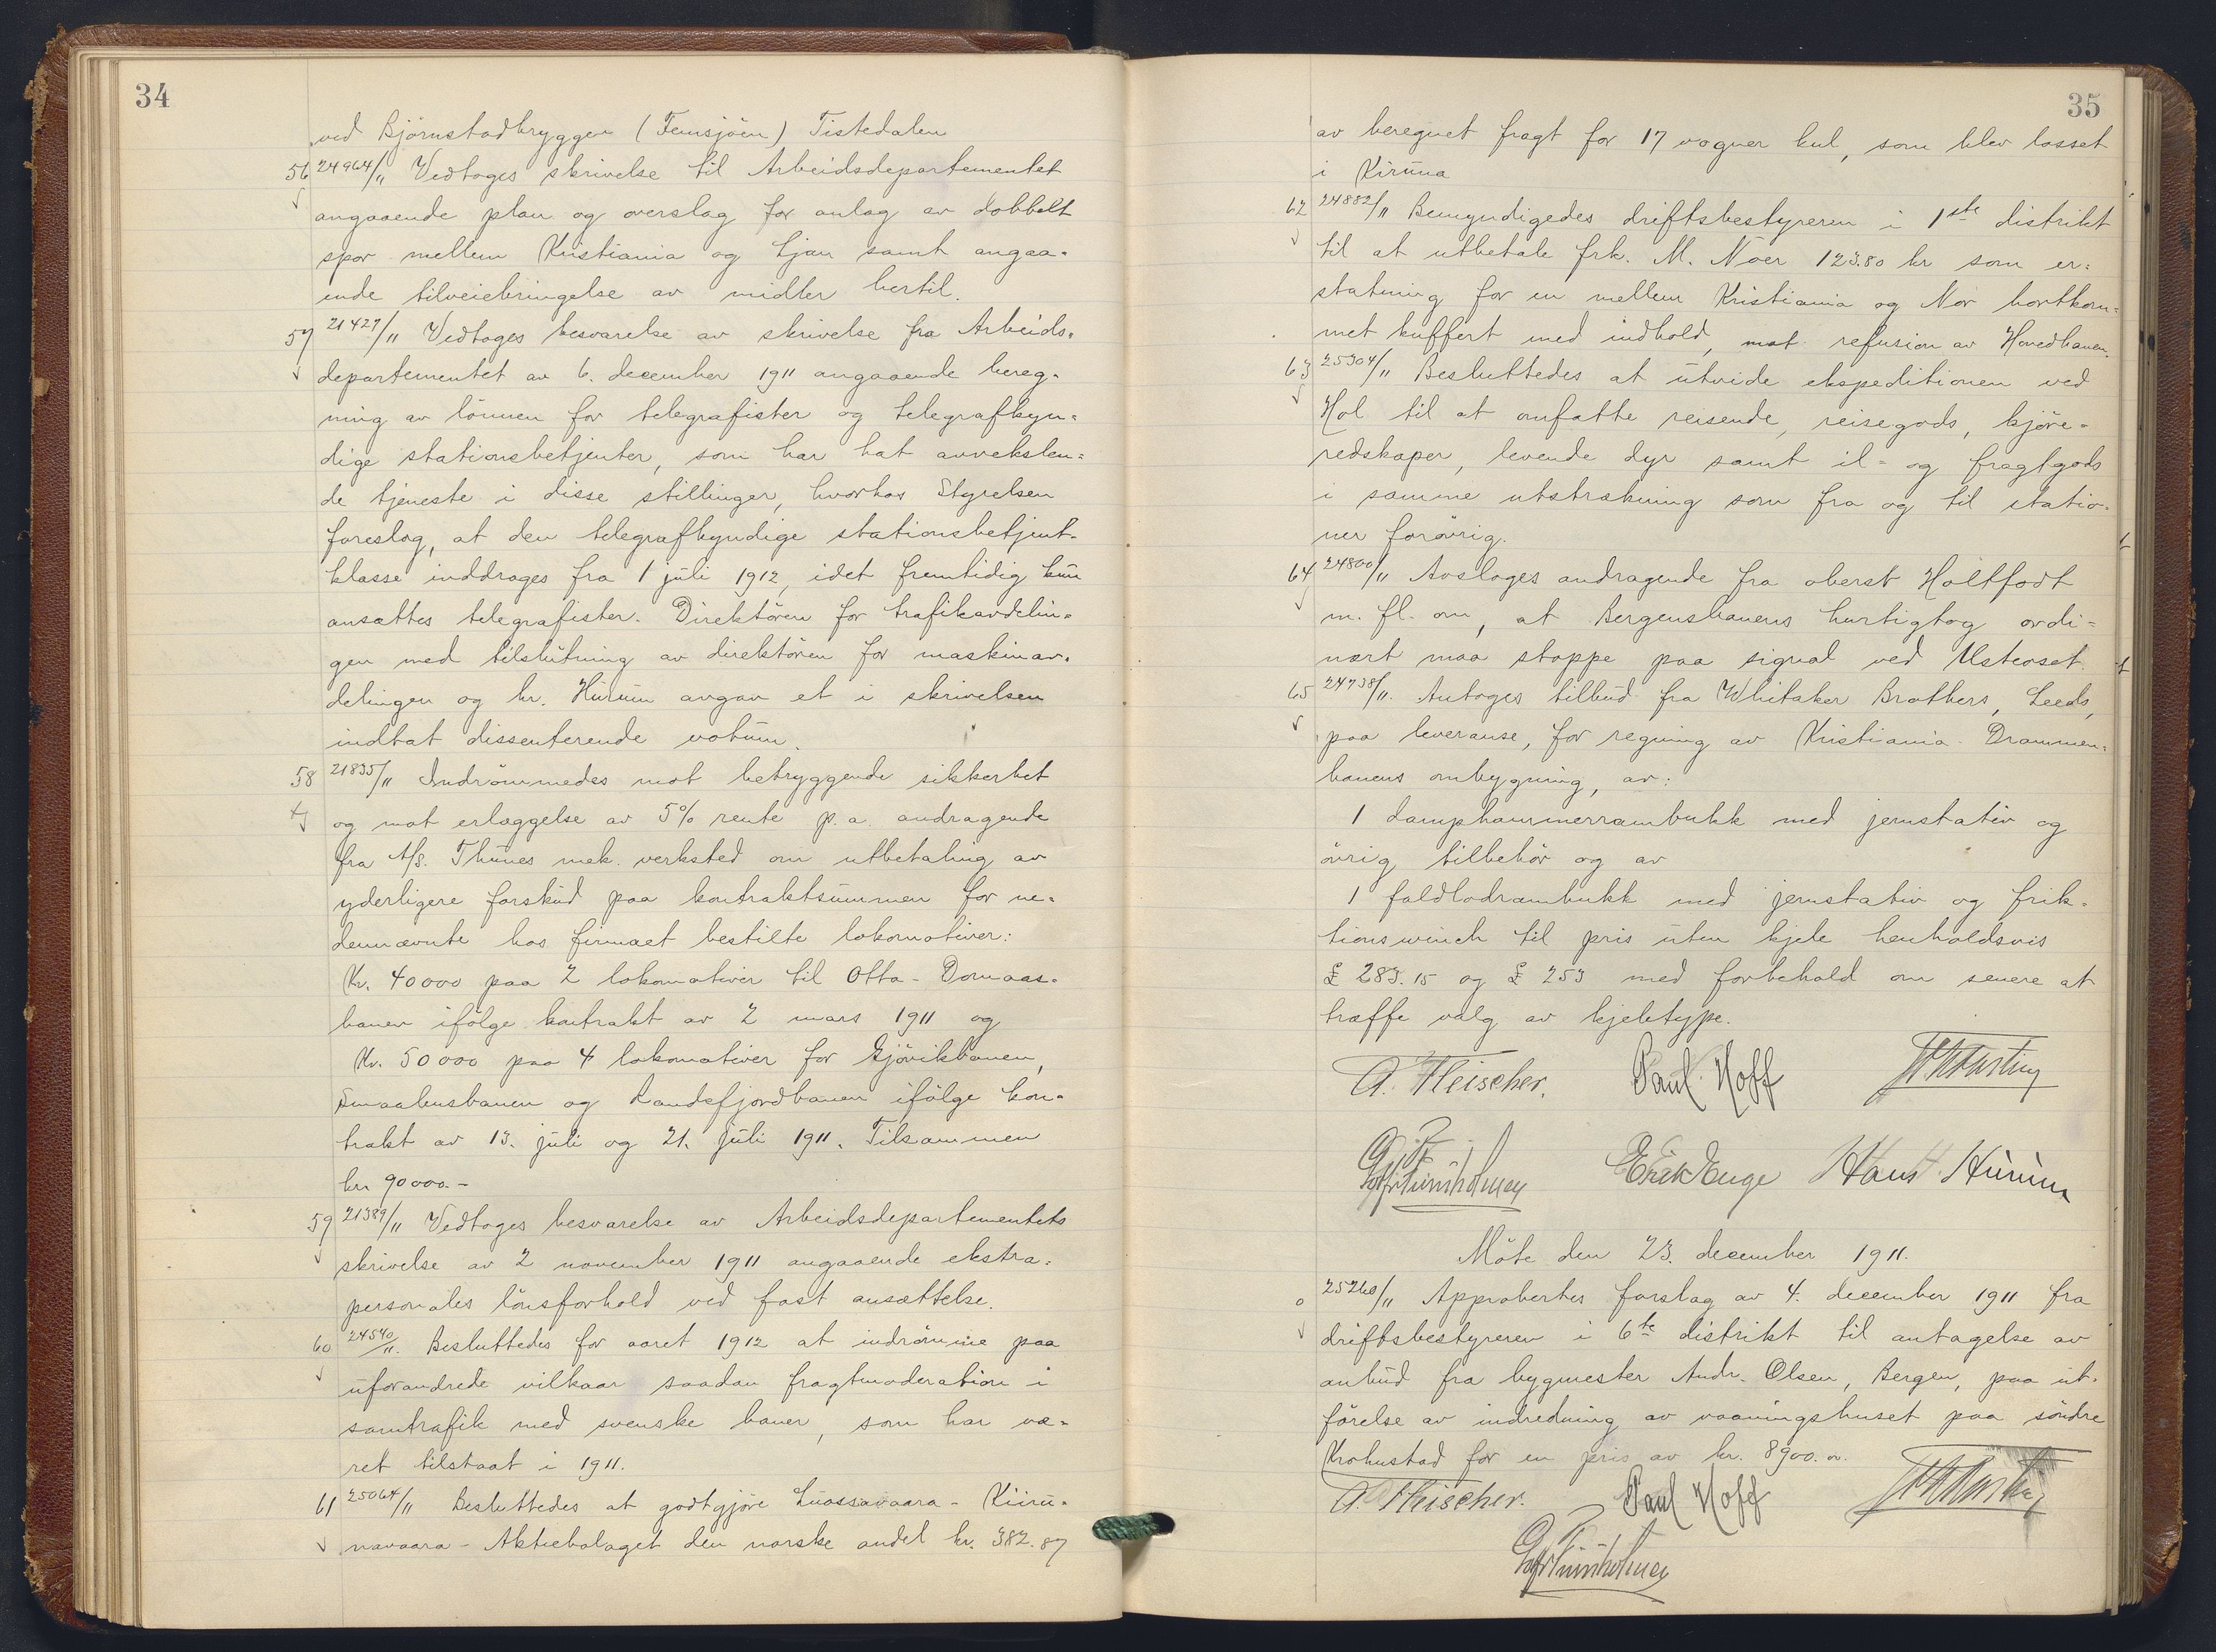 34
ved Björnstadbryggen (Femsjöen) Tistedalen
56 24964/11 Vedtoges skrivelse til Arbeidsdepartementet
angaaende plan og overslag for anlag av dobbelt
spor mellem Kristiania og Ljan samt angaa-
ende tilveiebringelse av midler hertil.
57 21427/11 Vedtoges besvarelse av skrivelse fra Arbeids-
departementet av 6. december 1911 angaaende bereg-
ning av lönnen for telegrafister og telegrafkyn-
dige stationsbetjenter, som har hat avvekslen-
de tjeneste i disse stillinger, hvorhos Styrelsen
foreslog, at den telegrafkyndige stationsbetjent-
klasse inddrages fra 1 juli 1912, idet fremtidig kun
ansættes telegrafister. Direktören for trafikavdelin-
gen med tilslutning av direktören for maskinav-
delingen og hr. Hurum avgav et i skrivelsen
indtat dissenterende votum.
58 21835/11 Indrömmedes mot betryggende sikkerhet
og mot erlæggelse av 5% rente p.a. andragende
fra A/S. Thunes mek. verksted om utbetaling av
yderligere forskud paa kontraktsummen for ne-
dennævnte hos firmaet bestilte lokomotiver:
Kr. 40000 paa 2 lokomotiver til Otta-Domaas-
banen ifölge kontrakt av 2 mars 1911 og
Kr. 50000 paa 4 lokomotiver for Gjövikbanen,
Smaalensbanen og Randsfjordbanen ifölge kon-
trakt av 13. juli og 21. juli 1911. Tilsammen
kr. 90000.-
59 21389/11 Vedtoges besvarelse av Arbeidsdepartementets
skrivelse av 2 november 1911 angaaende ekstra-
personales lönsforhold ved fast ansættelse.
60 24540/11. Besluttedes for aaret 1912 at indrömme paa
uforandrede vilkaar saadan fragtmoderation i
samtrafik med svenske baner, som har væ-
ret tilstaat i 1911.
61 25064/11 Besluttedes at godtgjöre Luossavaara-Kiiru-
navaara-Aktiebolaget den norske andel kr. 382.87
35
av beregnet fragt for 17 vogner kul, som blev losset
i Kiruna
62 24882/11 Bemyndigedes driftsbestyreren i 1ste distrikt
til at utbetale frk. M. Noer 123.80 kr som er-
statning for en mellem Kristiania og Nor bortkom-
met kuffert med indhold, mot refusion av Hovedbanen.
63 25304/11 Besluttedes at utvide ekspeditionen ved
Hol til at omfatte reisende, reisegods, kjöre-
redskaper, levende dyr samt il- og fragtgods
i samme utstrækning som fra og til statio-
ner forövrig.
64 24800/11 Avsloges andragende fra oberst Holtfodt
m. fl. om, at Bergensbanens hurtigtog ordi-
nært maa stoppe paa signal ved Ustaoset.
65 24738/11. Antoges tilbud fra Whitaker Brothers, Leeds,
paa leveranse, for regning av Kristiania-Drammen-
banens ombygning, av:
1 damphammerrambukk med jernstativ og
övrig tilbehör og av
1 faldlodrambukk med jernstativ og frik-
tionswinch til pris uten kjele henholdsvis
£ 283.15 og £ 253 med forbehold om senere at
træffe valg av kjeletype.
A. Fleischer. Paul Hoff
Erik Enge Hans Hurum
Möte den 23. december 1911.
25260/11 Approbertes forslag av 4. december 1911 fra
driftsbestyreren i 6te distrikt til antagelse av
anbud fra bygmester Andr. Olsen, Bergen, paa ut-
förelse av indredning av vaaningshuset paa söndre
Krohnstad for en pris av kr. 8900.00.
A. Fleischer. Paul Hoff